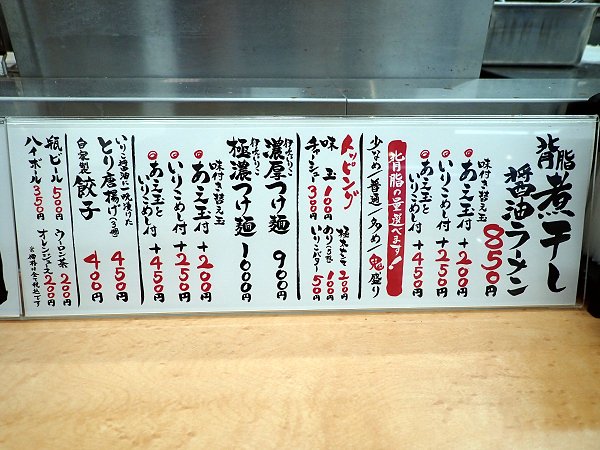 背脂煮干し
醤油ラーメン
850円
味付き替え玉
あえ玉付 +200円
いりこめし付 +250円
あえ玉と
いりこめし付 +450円
背脂の量選べます!
少なめ/普通/多め/鬼盛り
トッピング
味玉 100円
チャーシュー 300円
極太メンマ 200円
のり(5枚) 100円
いりこバター 50円
伊吹いりこ
濃厚つけ麺 900円
伊吹いりこ
極濃つけ麺 1000円
味付き替え玉
あえ玉付 +200円
いりこめし付 +250円
あえ玉と
いりこめし付 +450円
いりこ醤油に一晩漬けた
とり唐揚げ(3ヶ) 450円
自家製 餃子 400円
瓶ビール 500円
ハイボール 350円
ウーロン茶 200円
オレンジジュース 200円
※価格は全て税込です